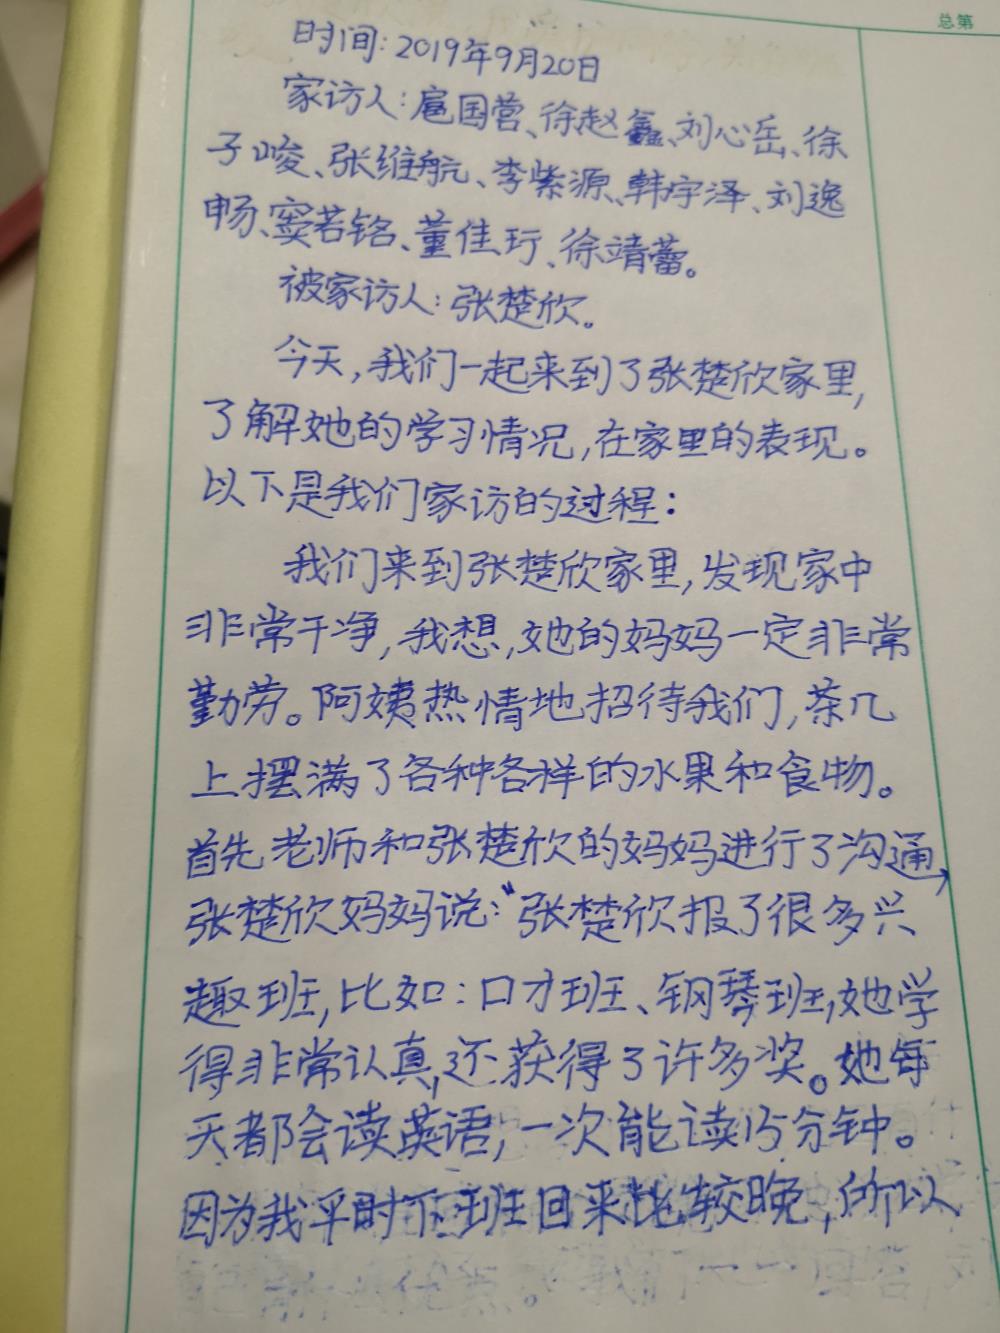 总第
时间:2019年9月20日
家访人:扈国营、徐赵鑫、刘心岳、徐
子峻、张维航、李紫源、韩宇泽、刘逸
畅、窦若铭、董佳珩、徐靖蕾。
被家访人:张楚欣。
今天,我们一起来到了张楚欣家里,
了解她的学习情况,在家里的表现。
以下是我们家访的过程:
我们来到张楚欣家里,发现家中
非常干净,我想,她的妈妈一定非常
勤劳。阿姨热情地招待我们,茶几
上摆满了各种各样的水果和食物。
首先老师和张楚欣的妈妈进行了沟通,
张楚欣妈妈说:“张楚欣报了很多兴
趣班,比如:口才班、钢琴班,她学
得非常认真,还获得了许多奖。她每
天都会读英语,一次能读15分钟。
因为我平时下班回来比较晚,所以